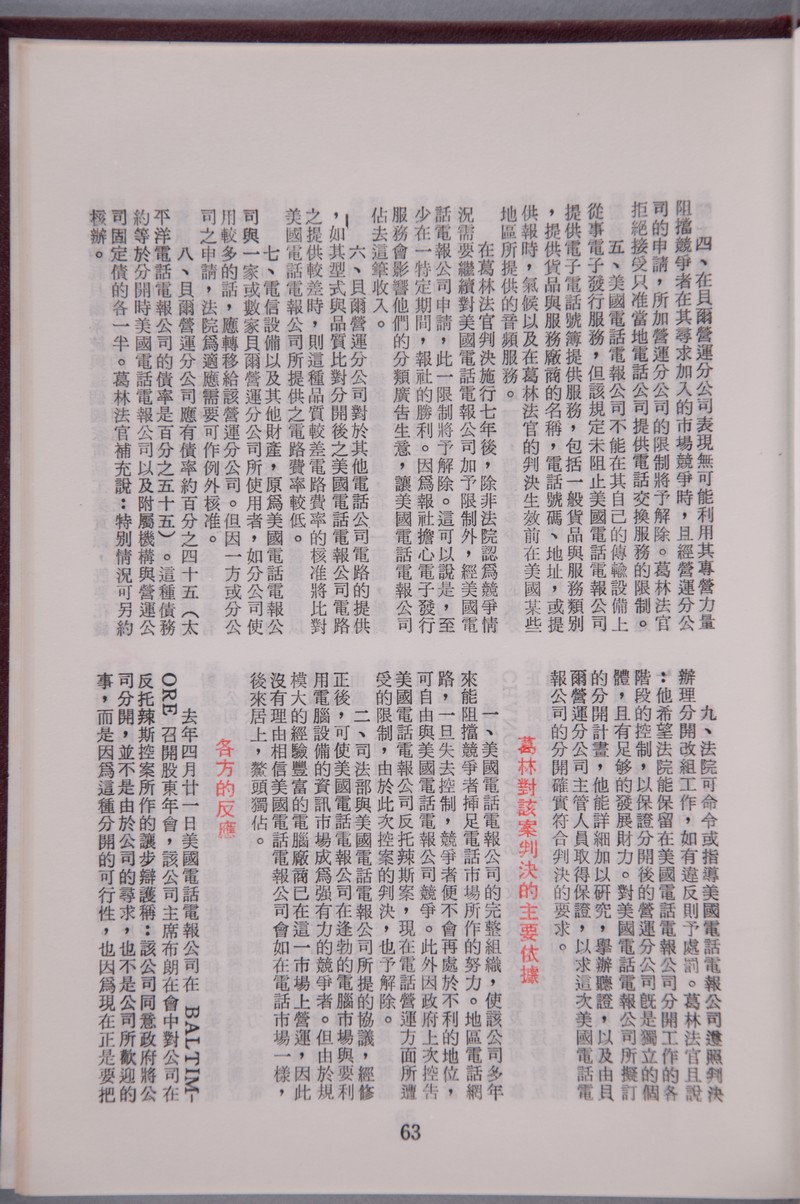 四、在貝爾營運分公司表現無可能利用其專營力量
阻擋競爭者在其尋求加入的市場競爭時，且經營運分公
司的申請，所加營運分公司的限制將予解除。葛林法官
拒絕接受只准當地電話公司提供電話交換服務的限制。
五、美國電話電報公司不能在其自己的傳輸設備上
從事電子發行服務，但該規定未阻止美國電話電報公司
提供電子電話號簿提供服務，包括一般貨品與服務類別
，提供貨品與服務廠商的名稱，電話號碼、地址，或提
供報時，氣候以及在葛林法官的判決生效前在美國某些
地區所提供的音頻服務。
在葛林法官判決施行七年後，除非法院認爲競爭情
況需要繼續對美國電話電報公司加予限制外，經美國電
話電報公司申請，此一限制將予解除。這可以說是，至
少在一特定期間，報社的勝利。因爲報社擔心電子發行
服務會影響他們的分類廣告生意，讓美國電話電報公司
佔去這筆收入。
六、貝爾營運分公司對於其他電話公司電路的提供
，如其型式與品質比對分開後之美國電話電報公司電路
之提供較差時，則這種品質較差電路費率的核准將比對
美國電話電報公司所提供之電路費率較低。
七、電信設備以及其他財產，原爲美國電話電報公
司與一家或數家貝爾營運分公司所使用者，如分公司使
用較多的話，應轉移給該營運分公司。但因一方或分公
司之申請，法院爲適應需要可作例外核准。
八、貝爾營運分公司應有債率約百分之四十五（太
平洋電話電報公司的債率是百分之五十五）。這種債務
約等於分開時美國電話電報公司以及附屬機構與營運公
司固定債的各一半。葛林法官補充說：特别情況可另約
核辦。
九、法院可命令或指導美國電話電報公司遵照判決
辦理分開改組工作，如有違反則予處罰。葛林法官且說
：他希望法院能保留在美國電話電報公司分開工作的各
階段的控制，以保證分開後的營運分公司既是獨立的個
體，且有足够的發展財力。對美國電話電報公司所擬訂
的分開計畫，他能詳細加以研究，舉辦聽證，以及由貝
爾營運分公司主管人員取得保證，以求這次美國電話電
報公司的分開確實符合判決的要求。
葛林對該案判決的主要依據
一、美國電話電報公司的完整組織，使該公司多年
來能阻擋競爭者揷足電話市場所作的努力。地區電話網
路，一旦失去控制，競爭者便不會再處於不利的地位，
可自由與美國電話電報公司競爭。此外因政府上次控告
美國電話電報公司反托辣斯案，現在電話營運方面所遭
受的限制，由於此次控案的判決，也予解除。
二、司法部與美國電話電報公司所提的協議，經修
正後，可使美國電話電報公司在逢勃的電腦市場與要利
用電腦設備的資訊市場成爲强有力的競爭者。但由於規
模大的經驗豐富的電腦廠商已在這一市場上營運，因此
沒有理由相信美國電話電報公司會如在電話市場一樣，
後來居上，鰲頭獨佔。
各方的反應
去年四月廿一日美國電話電報公司在 BALTIM-
ORE 召開股東年會，該公司主席布朗在會中對公司在
反托辣斯控案所作的讓步辯護稱：該公司同意政府將公
司分開，並不是由於公司的尋求，也不是公司所歡迎的
事，而是因爲這種分開的可行性，也因爲現在正是要把
63